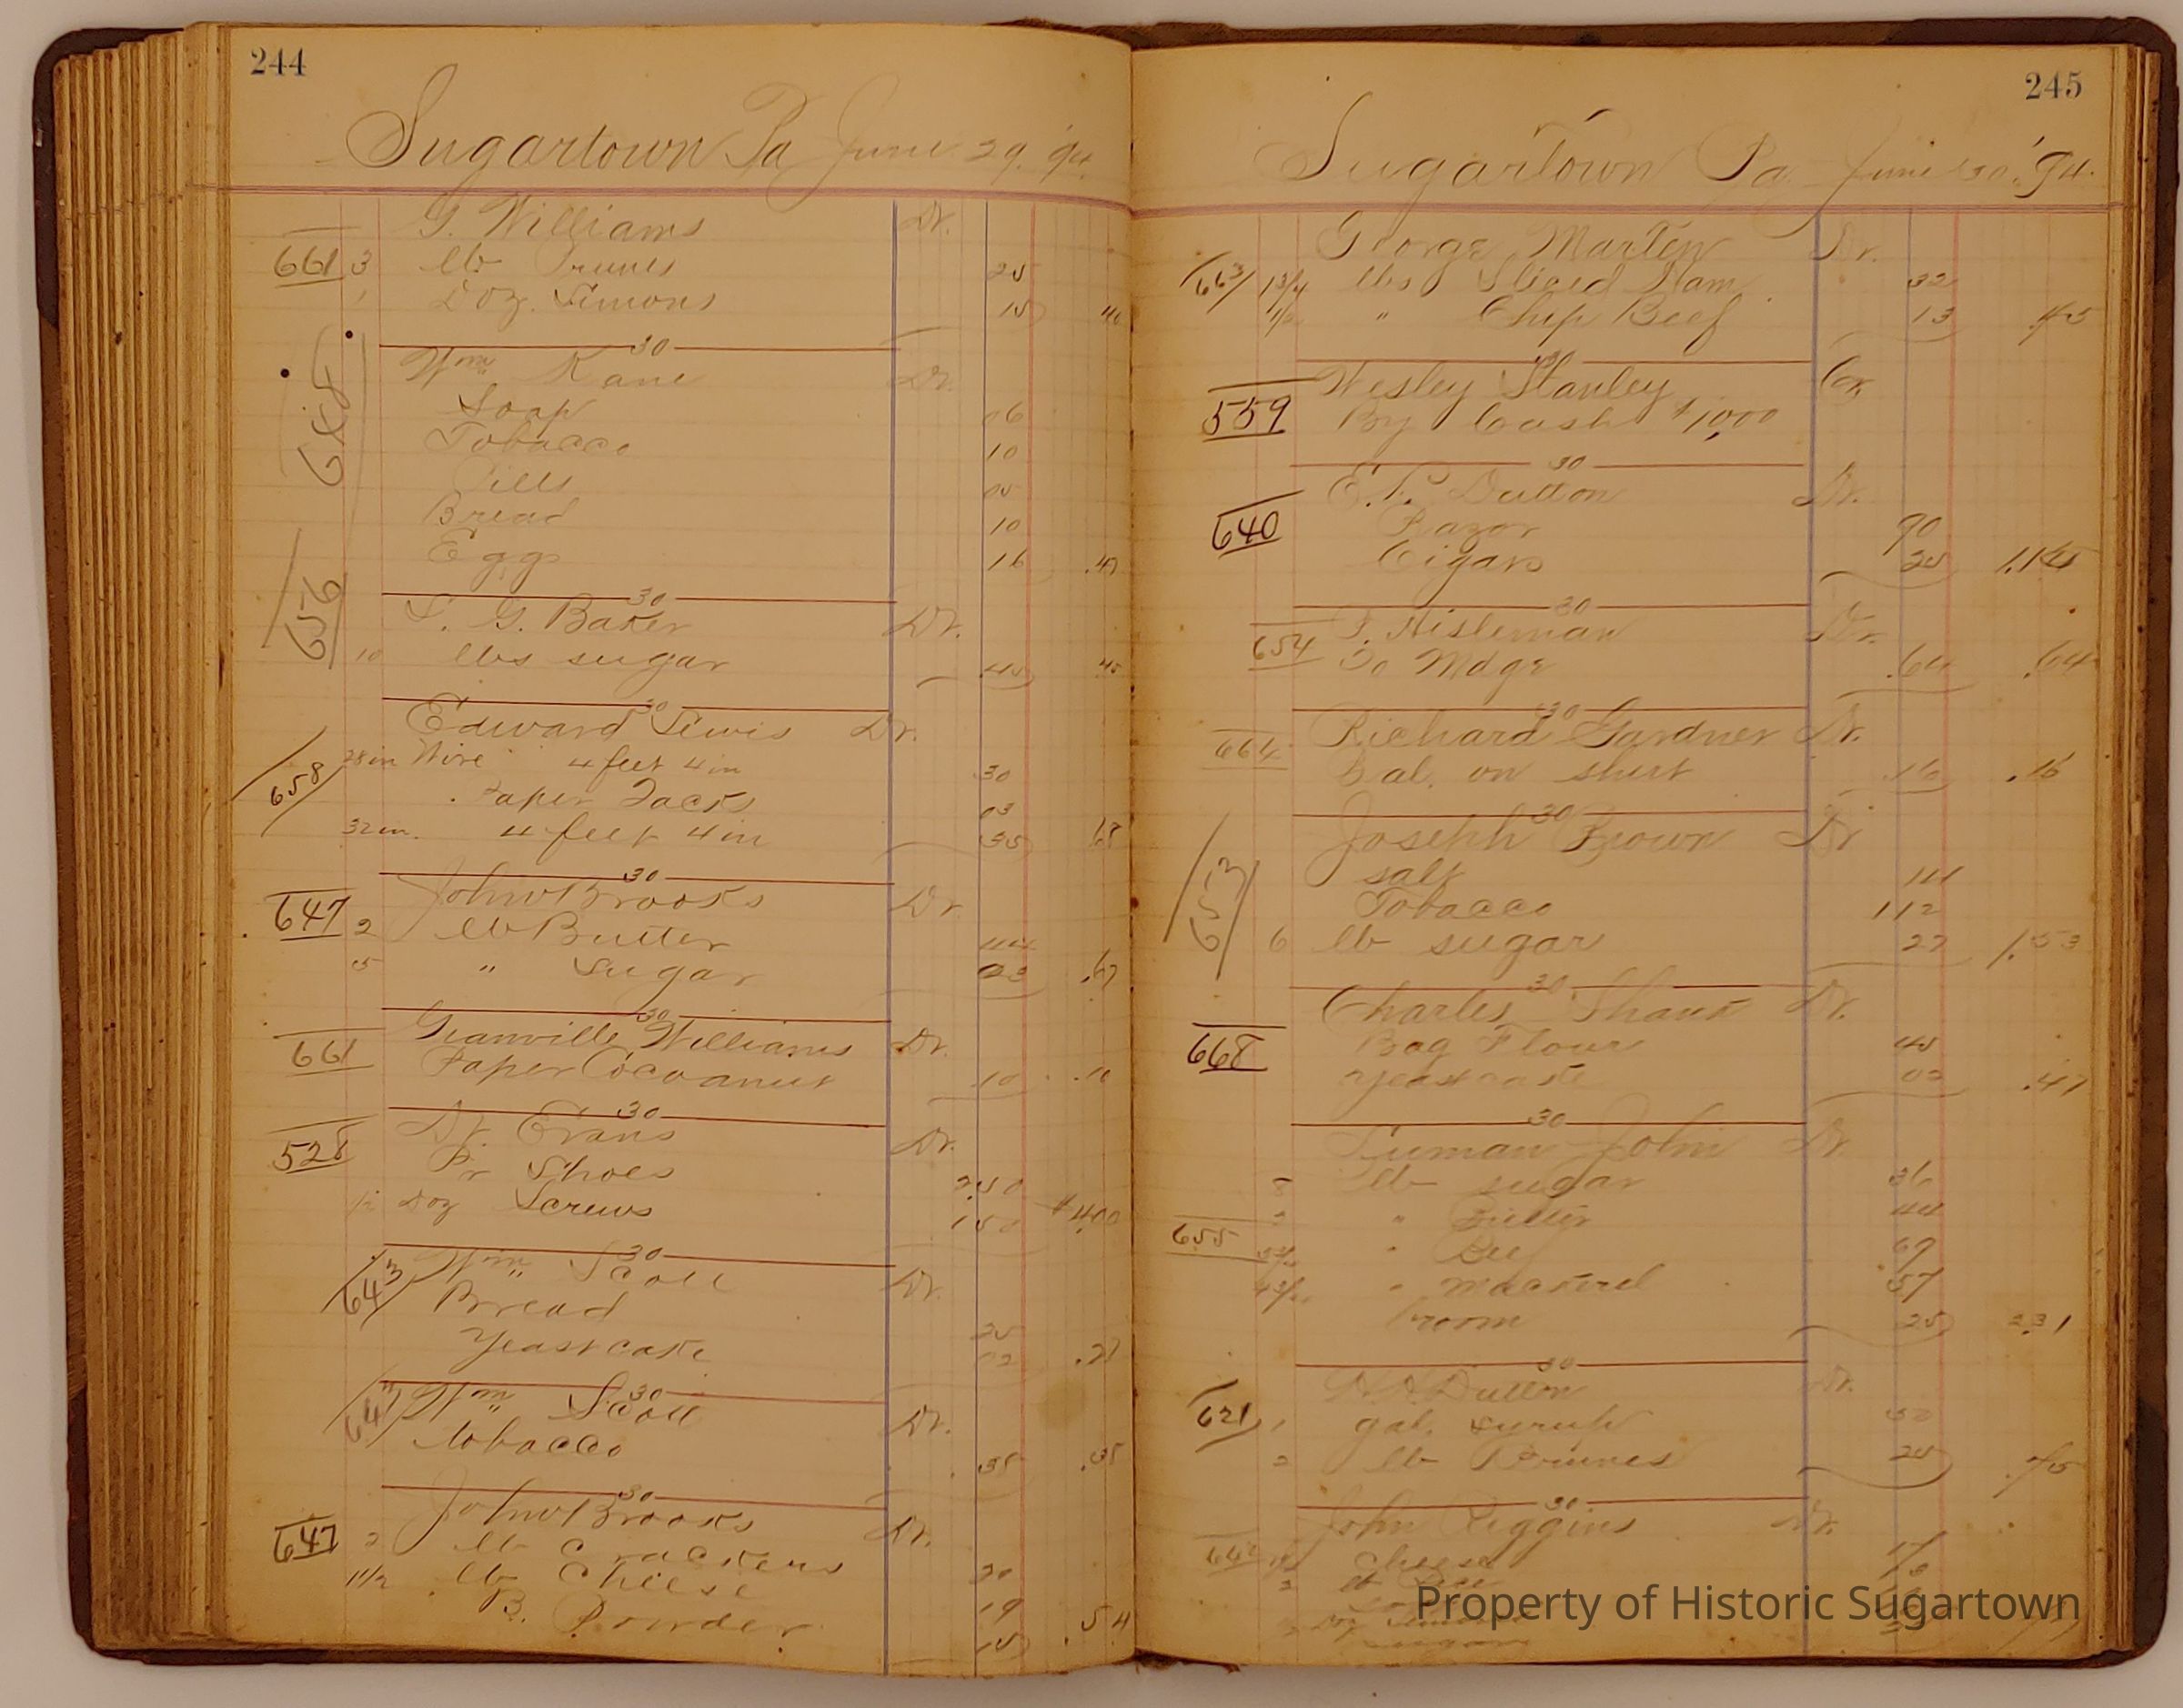 244
Sugartown Pa June 29, '94.
G. Williams Dr.
661 3 lb Prunes 25
1 Doz. Lemons 15 40
30
Wm Kane Dr.
648
Soap 06
Tobacco 10
Pills 05
Bread 10
Eggs 16 .47
30
656
S. G. Baker Dr.
10 lbs sugar 45 45
30
Edward Lewis Dr.
658
28 in Wire 4 feet 4 in 30
Paper Tacks 03
32 in. 4 feet 4 in 35 68
30
647
John Brooks Dr.
2 lb Butter 44
5 " Sugar 23 .67
30
661
Granville Williams Dr.
Paper Cocoanut .10 .10
30
528
Dr. Evans Dr.
Pr Shoes 2.50
1/2 Doz Screws 1.50 $4.00
30
643
Wm Scott Dr.
Bread 25
Yeastcake 02 .27
30
643
Wm Scott Dr.
tobacco .35 .35
30
647
John Brooks Dr.
2 lb Crackers 20
1 1/2 lb Cheese 19
B. Powder 15 .54
245
Sugartown Pa June 30, '94.
George Marten Dr.
663 1 3/4 lbs Sliced Ham 32
1/2 " Chip Beef 13 .45
30
559
Wesley Stanley Cr.
By Cash $10.00
30
640
E. P. Dutton Dr.
Razor 90
Cigars 25 1.15
30
654
Dr.
To Mdse .64 .64
30
664
Richard Gardner Dr.
Bal. on shirt .15 .15
30
653
Joseph Brown Dr.
salt 14
Tobacco 1 12
6 lb sugar 27 1.53
30
668
Charles Shank Dr.
Bag Flour 45
Yeastcake 02 .47
30
655
Luman John Dr.
8 lb sugar 36
2 " Butter 44
" Beef 69
" Mackerel 57
Broom 25 2.31
30
621
Dutton Dr.
1 gal. syrup 50
2 lb Prunes 25 .75
30
John Riggins Dr.
Cheese
Property of Historic Sugartown